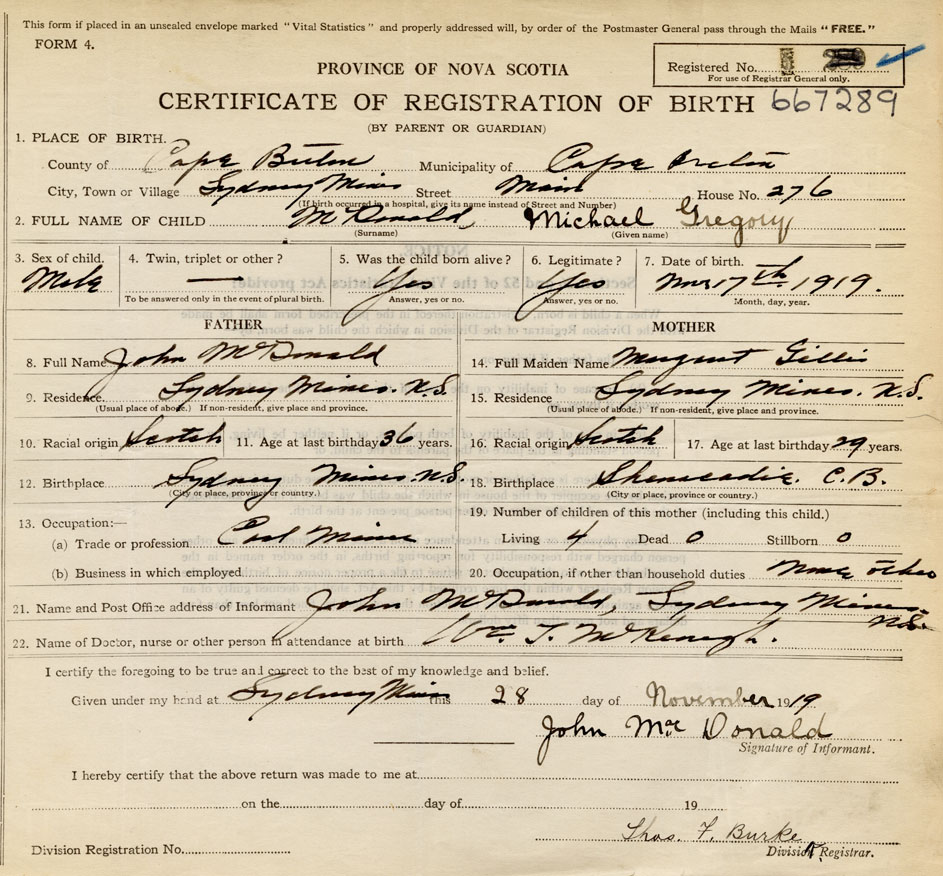 This form if placed in an unsealed envelope marked "Vital Statistics" and properly addressed will, by order of the Postmaster General pass through the Mails "FREE."
FORM 4.
Registered No.
For use of Registrar General only.
PROVINCE OF NOVA SCOTIA
CERTIFICATE OF REGISTRATION OF BIRTH 667289
(BY PARENT OR GUARDIAN)
1. PLACE OF BIRTH.
County of Cape Breton Municipality of Cape Breton
City, Town or Village Sydney Mines Street Main House No. 276
(If birth occurred in a hospital, give its name instead of Street and Number)
2. FULL NAME OF CHILD McDonald, Michael Gregory
(Surname) (Given name)
3. Sex of child. 4. Twin, triplet or other? 5. Was the child born alive? 6. Legitimate? 7. Date of birth.
Male — Yes Yes Nov 17th 1919.
To be answered only in the event of plural birth. Answer, yes or no. Answer, yes or no. Month, day, year.
FATHER MOTHER
8. Full Name John McDonald 14. Full Maiden Name Margaret Gillis
9. Residence Sydney Mines. N.S. 15. Residence Sydney Mines. N.S.
(Usual place of abode.) If non-resident, give place and province. (Usual place of abode.) If non-resident, give place and province.
10. Racial origin Scotch 11. Age at last birthday 36 years. 16. Racial origin Scotch 17. Age at last birthday 29 years.
12. Birthplace Sydney Mines. N.S. 18. Birthplace Shenacadie. C.B.
(City or place, province or country.) (City or place, province or country.)
13. Occupation:— 19. Number of children of this mother (including this child.)
(a) Trade or profession Coal Miner Living 4 Dead 0 Stillborn 0
(b) Business in which employed 20. Occupation, if other than household duties None other
21. Name and Post Office address of Informant John McDonald, Sydney Mines. N.S.
22. Name of Doctor, nurse or other person in attendance at birth Wm. J.
I certify the foregoing to be true and correct to the best of my knowledge and belief.
Given under my hand at Sydney Mines this 28 day of November 1919
John Mac Donald
Signature of Informant.
I hereby certify that the above return was made to me at
on the day of 19
Thos. F. Burke
Division Registration No. Division Registrar.